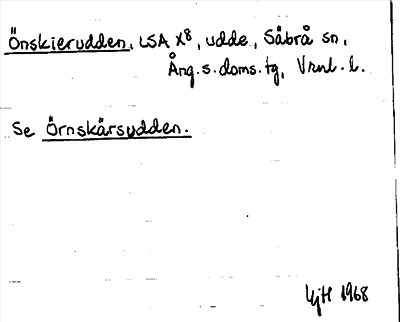 Önskierudden, LSA X8, udde, Såbrå sn,
Ång. s. doms. tg, Vrnl. l.
Se Örnskärsudden.
UjH 1968